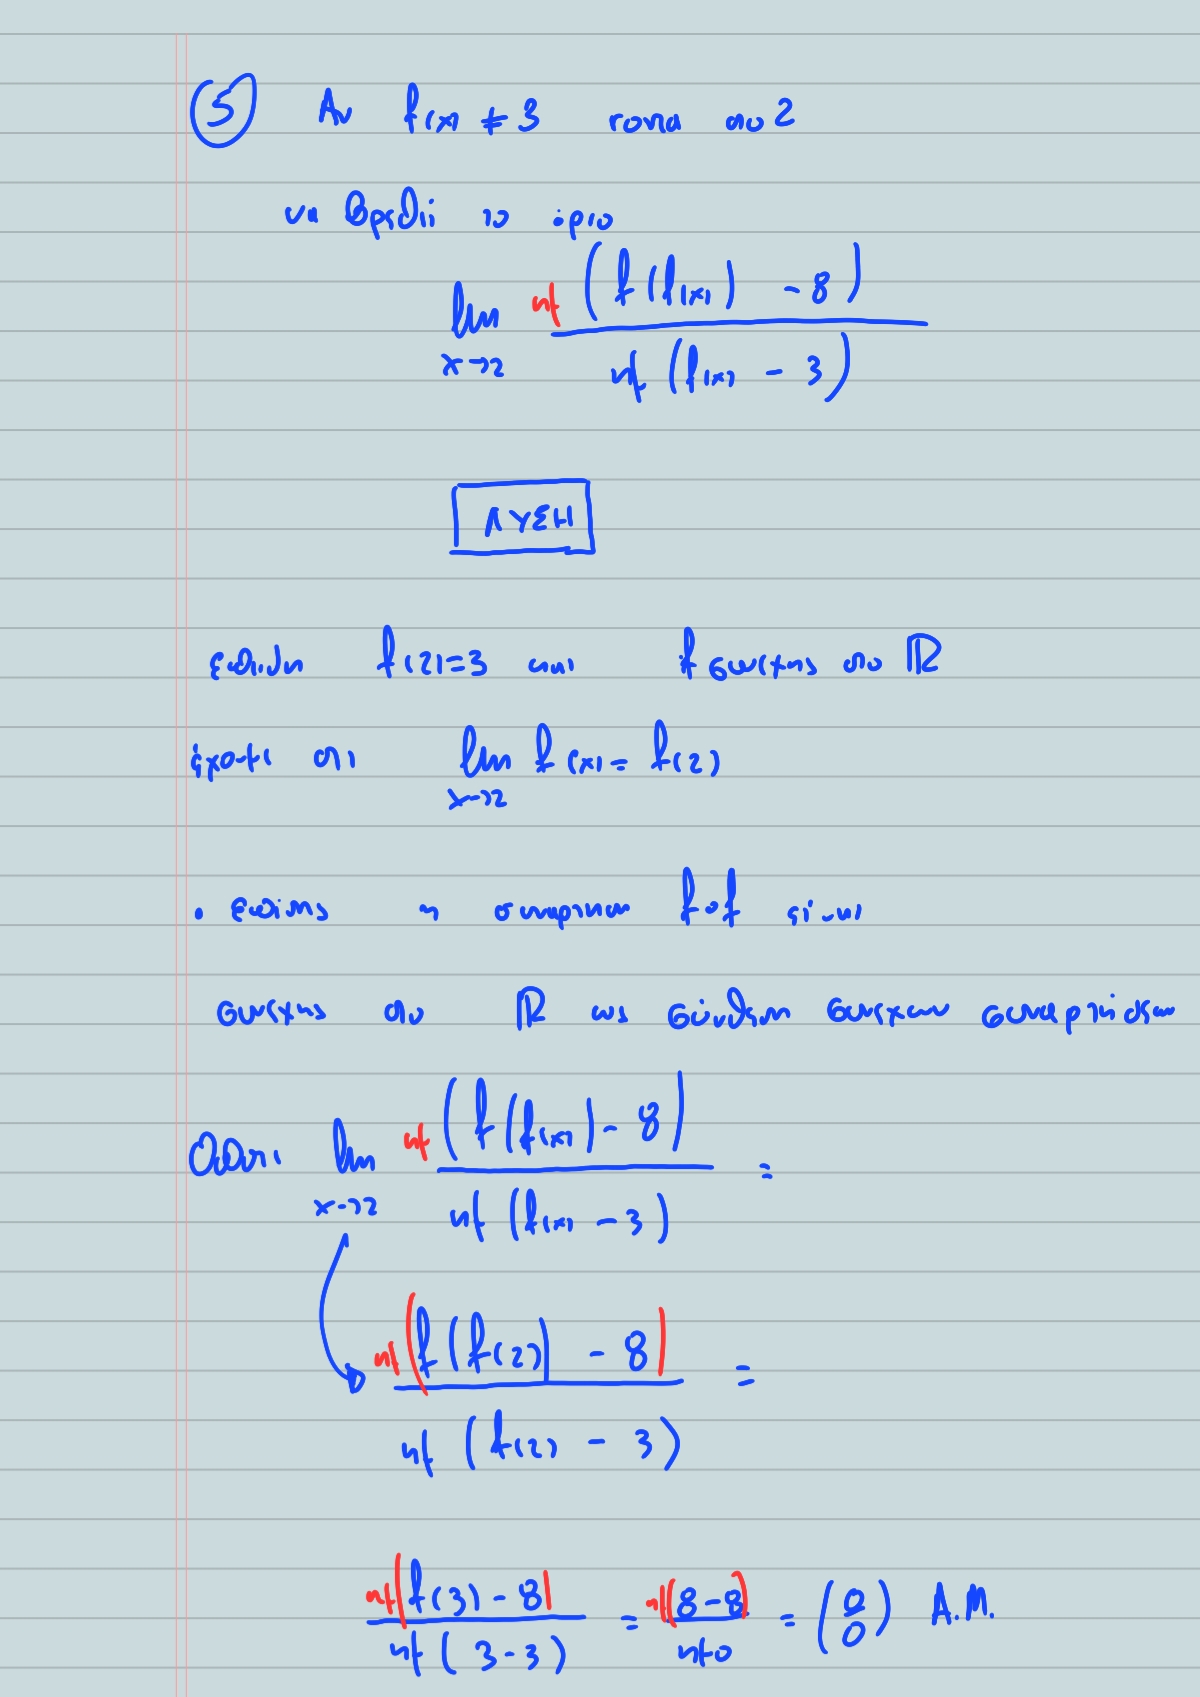 5 Αν f(x) ≠ 3 κοντά στο 2
να βρεθεί το όριο
lim x→2 ημ(f(f(x)) - 8) / ημ(f(x) - 3)
ΛΥΣΗ
επειδή f(2)=3 και f συνεχής στο ℝ
έχουμε ότι lim x→2 f(x) = f(2)
• επίσης η συνάρτηση f∘f είναι
συνεχής στο ℝ ως σύνθεση συνεχών συναρτήσεων
Οπότε lim x→2 ημ(f(f(x)) - 8) / ημ(f(x) - 3) =
ημ(f(f(2)) - 8) / ημ(f(2) - 3) =
ημ(f(3) - 8) / ημ(3-3) = ημ(8-8) / ημ0 = (0/0) Α.Μ.